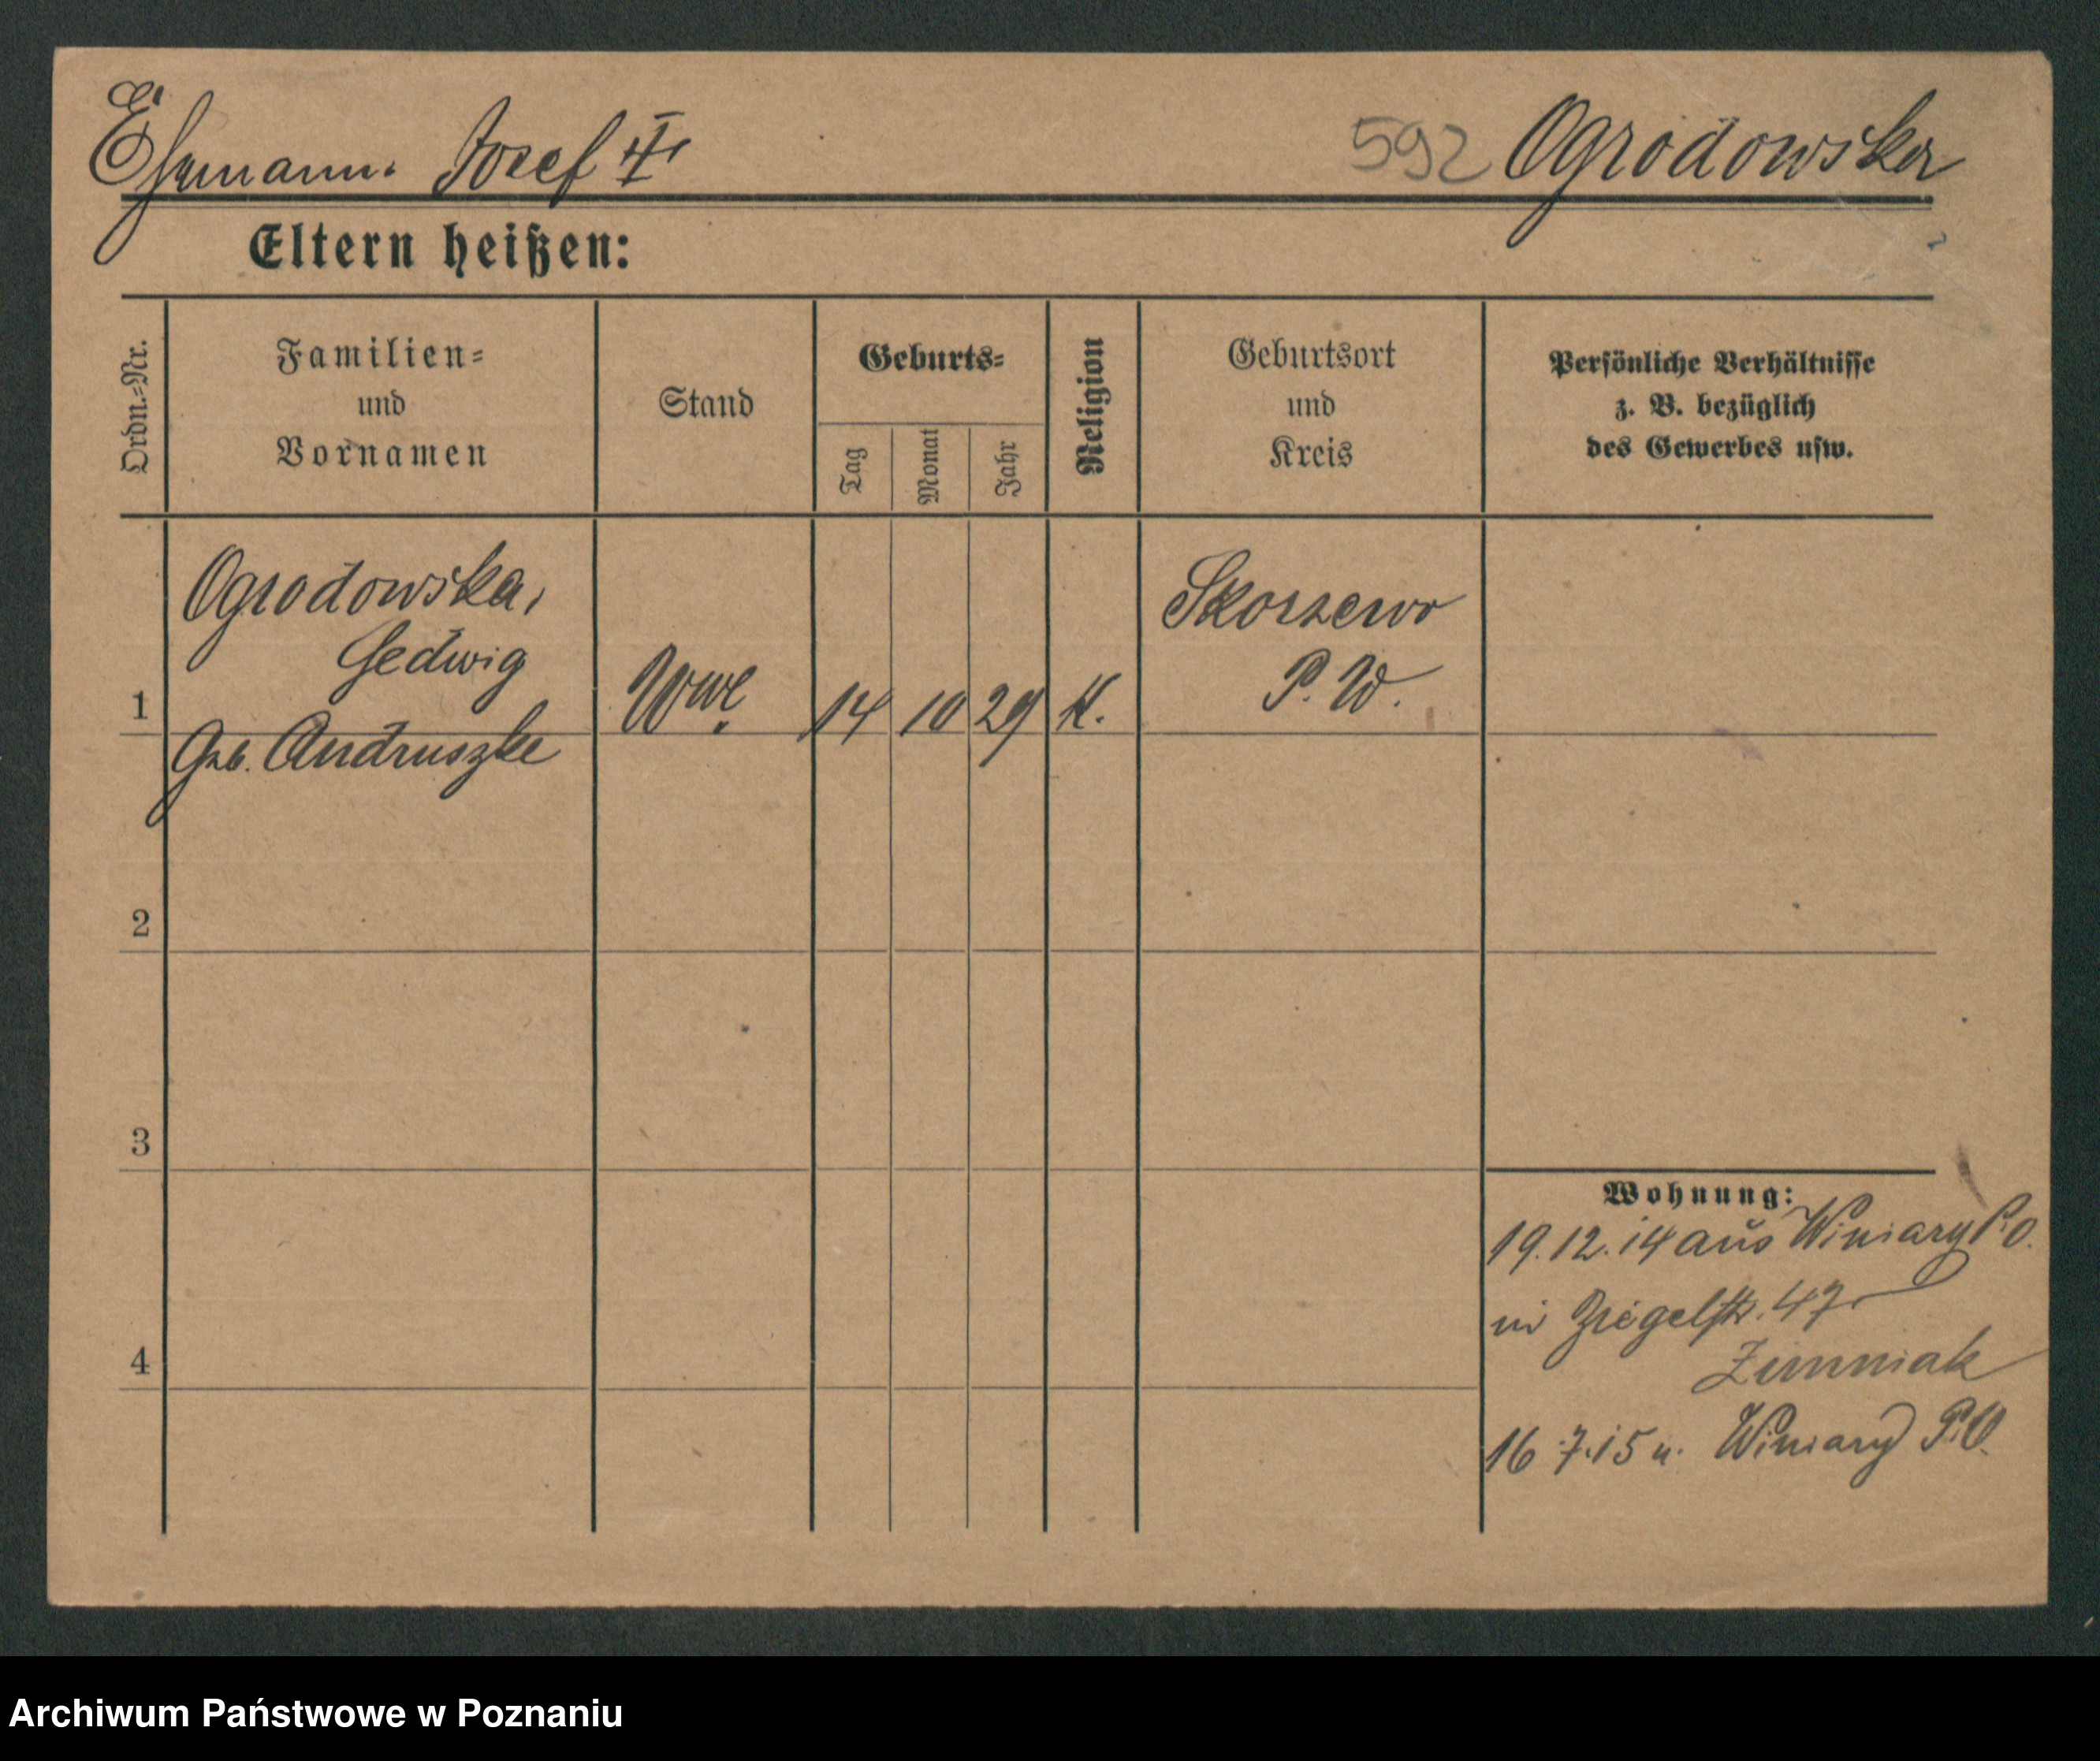 Ehrmann. Josef II 592 Ogrodowska
Eltern heißen:
Ordn.-Nr.
Familien-
und
Vornamen
Stand
Geburts-
Tag
Monat
Jahr
Religion
Geburtsort
und
Kreis
Persönliche Verhältnisse
z. B. bezüglich
des Gewerbes usw.
Ogrodowska,
Hedwig
1 Wwe. 14 10 29 K.
Skorzewo
P. W.
Geb. Andruszke
2
3
4
Wohnung:
19.12.14 aus Winiary P.O.
in Ziegelstr. 47
Zimniak
16.7.15 n. Winiary P.O.
Archiwum Państwowe w Poznaniu